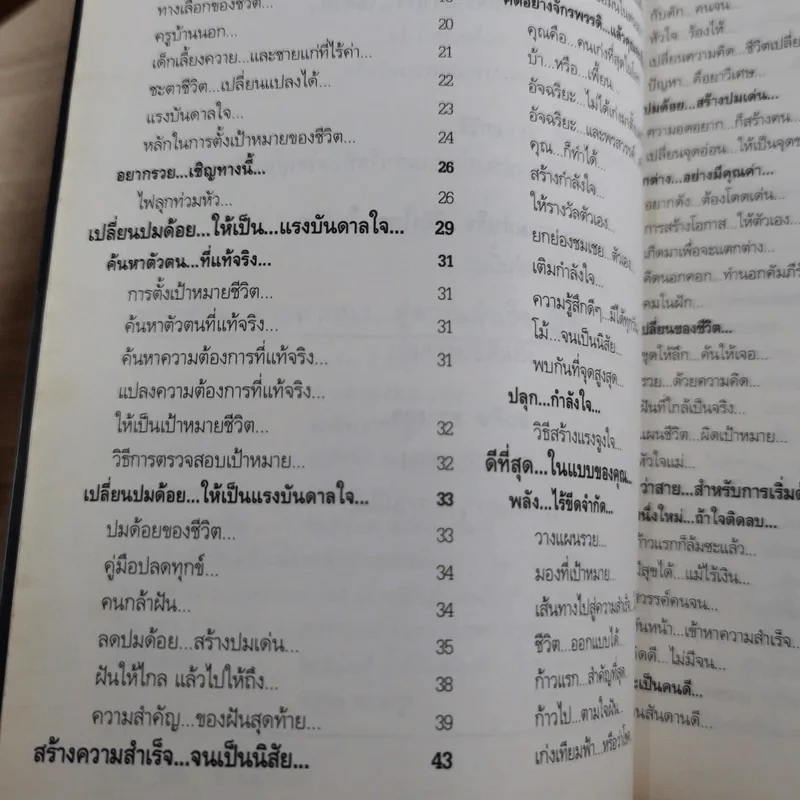 ทางเลือกของชีวิต...
ครูบ้านนอก... 20
เด็กเลี้ยงควาย...และชายแก่ที่ไร้ค่า... 21
ชะตาชีวิต...เปลี่ยนแปลงได้... 22
แรงบันดาลใจ... 23
หลักในการตั้งเป้าหมายของชีวิต... 24
อยากรวย...เชิญทางนี้... 26
ไฟลุกท่วมหัว... 26
เปลี่ยนปมด้อย...ให้เป็น...แรงบันดาลใจ... 29
ค้นหาตัวตน...ที่แท้จริง... 31
การตั้งเป้าหมายชีวิต... 31
ค้นหาตัวตนที่แท้จริง... 31
ค้นหาความต้องการที่แท้จริง... 31
แปลงความต้องการที่แท้จริง
ให้เป็นเป้าหมายชีวิต... 32
วิธีการตรวจสอบเป้าหมาย... 32
เปลี่ยนปมด้อย...ให้เป็นแรงบันดาลใจ... 33
ปมด้อยของชีวิต... 33
คู่มือปลดทุกข์... 34
คนกล้าฝัน... 34
ลดปมด้อย...สร้างปมเด่น... 35
ฝันให้ไกล แล้วไปให้ถึง... 38
ความสำคัญ...ของฝันสุดท้าย... 39
สร้างความสำเร็จ...จนเป็นนิสัย... 43
คิดอย่างจักรพรรดิ...
คุณคือ...คนเก่งที่สุดในโลก
บ้า...หรือ...เพี้ยน...
อัจฉริยะ...ไม่ได้เก่ง
อัจฉริยะ...และพรสวรรค์
คุณ...ก็ทำได้...
สร้างกำลังใจ...
ให้รางวัลตัวเอง...
ยกย่องชมเชย...ตัวเอง...
เติมกำลังใจ...
ความรู้สึกดีๆ...มีได้ทุกวัน
โม้...จนเป็นนิสัย...
พบกันที่จุดสูงสุด...
ปลุก...กำลังใจ...
วิธีสร้างแรงจูงใจ...
ดีที่สุด...ในแบบของคุณ...
พลัง...ไร้ขีดจำกัด...
วางแผนรวย...
มองที่เป้าหมาย...
เส้นทางไปสู่ความสำเร็จ
ชีวิต...ออกแบบได้...
ก้าวแรก...สำคัญที่สุด...
ก้าวไป...ตามใจฝัน...
เก่งเทียมฟ้า...หรือว่าโชค
กับดัก คนจน
หัวใจ ร้องไห้
เปลี่ยนความคิด...ชีวิตเปลี่ยน
ปัญหา...คือยาวิเศษ...
ปมด้อย...สร้างปมเด่น...
ความอดอยาก...ก็สร้างคน...
เปลี่ยนจุดอ่อน...ให้เป็นจุด
ต่าง...อย่างมีคุณค่า...
อยากดัง...ต้องโดดเด่น...
การสร้างโอกาส...ให้ตัวเอง...
เกิดมาเพื่อจะแตกต่าง...
คิดนอกคอก...ทำนอกคัมภีร์
คมในฝัก...
เปลี่ยนของชีวิต...
ขุดให้ลึก...ค้นให้เจอ...
รวย...ด้วยความคิด...
ฝันที่ใกล้เป็นจริง...
แผนชีวิต...ผิดเป้าหมาย...
หัวใจแม่...
สาย...สำหรับการเริ่มต้น
ถ้าใจติดลบ...
ก้าวแรกก็ล้มซะแล้ว...
มีสุขได้...แม้ไร้เงิน...
สวรรค์คนจน...
เข้าหาความสำเร็จ...
คิดดี...ไม่มีจน...
เป็นคนดี...
คนสันดานดี...